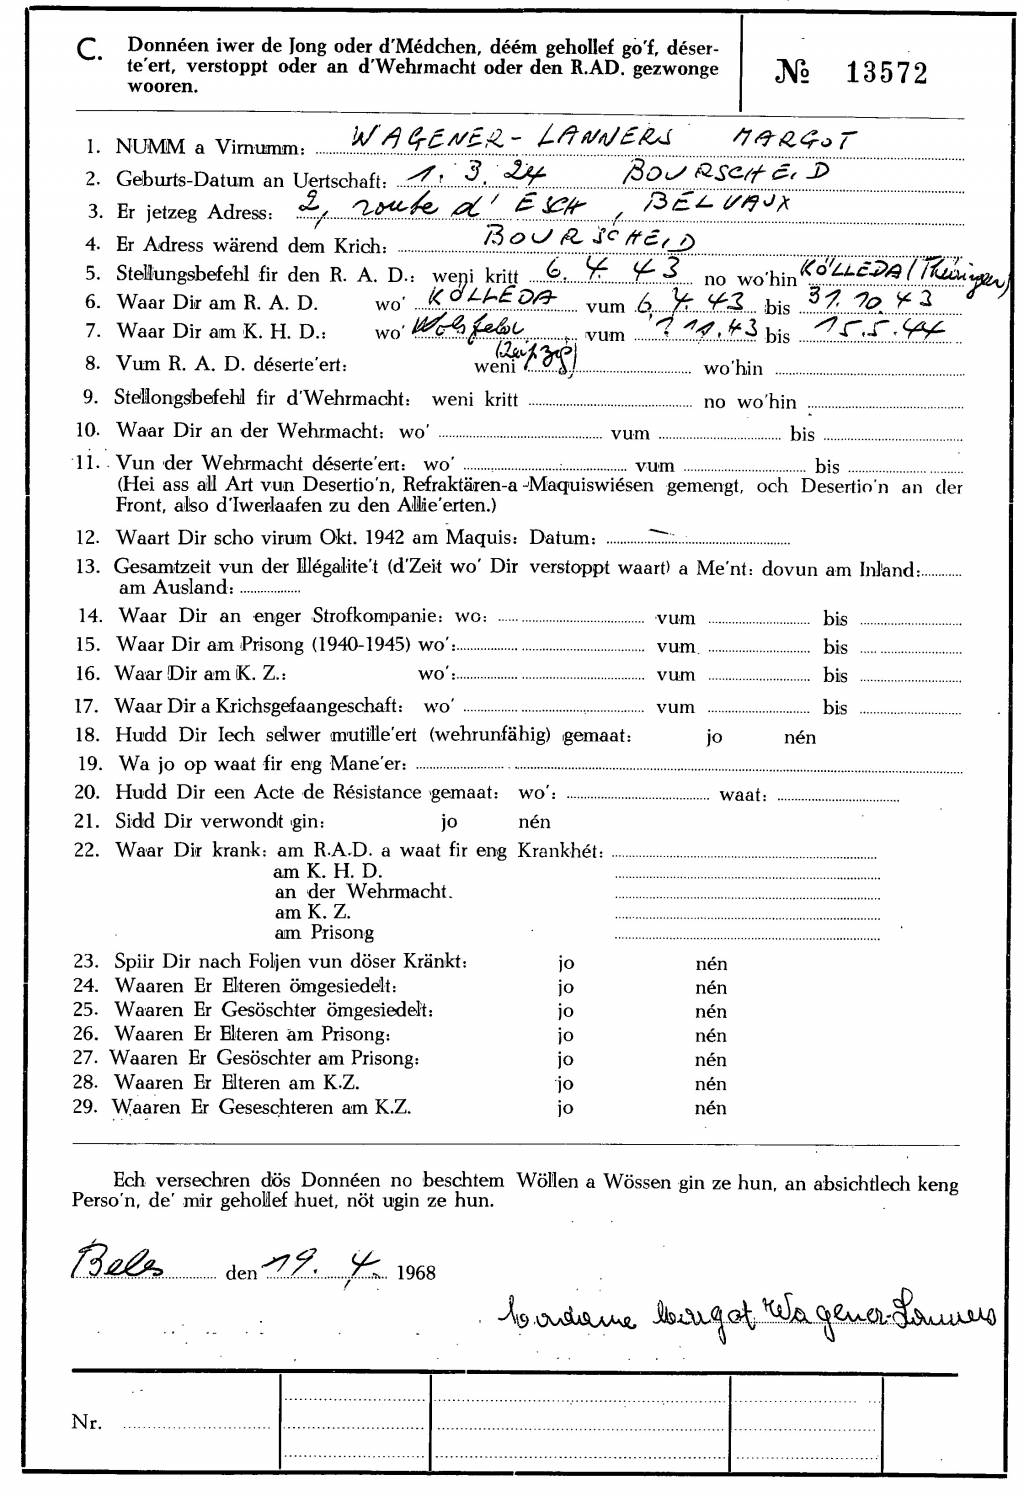 C. Donnéen iwer de Jong oder d'Médchen, déém gehollef go'f, déser-
te'ert, verstoppt oder an d'Wehrmacht oder den R.AD. gezwonge
wooren.
№ 13572
1. NUMM a Virnumm: WAGENER-LANNERS MARGOT
2. Geburts-Datum an Uertschaft: 1. 3. 24 BOURSCHEID
3. Er jetzeg Adress: 2, route d'ESCH, BELVAUX
4. Er Adress wärend dem Krich: BOURSCHEID
5. Stellungsbefehl fir den R. A. D.: weni kritt 6. 4. 43 no wo'hin KÖLLEDA (Thüringen)
6. Waar Dir am R. A. D. wo' KÖLLEDA vum 6. 4. 43 bis 31. 10. 43
7. Waar Dir am K. H. D.: wo' vum ? 11. 43 bis 15. 5. 44
(Leipzig)
8. Vum R. A. D. déserte'ert: weni wo'hin
9. Stellongsbefehl fir d'Wehrmacht: weni kritt no wo'hin
10. Waar Dir an der Wehrmacht: wo' vum bis
11. Vun der Wehrmacht déserte'ert: wo' vum bis
(Hei ass all Art vun Desertio'n, Refraktären-a -Maquiswiésen gemengt, och Desertio'n an der
Front, also d'Iwerlaafen zu den Allie'erten.)
12. Waart Dir scho virum Okt. 1942 am Maquis: Datum: —
13. Gesamtzeit vun der Illégalite't (d'Zeit wo' Dir verstoppt waart) a Me'nt: dovun am Inland:
am Ausland:
14. Waar Dir an enger Strofkompanie: wo: vum bis
15. Waar Dir am Prisong (1940-1945) wo': vum bis
16. Waar Dir am K. Z.: wo': vum bis
17. Waar Dir a Krichsgefaangeschaft: wo' vum bis
18. Hudd Dir Iech selwer mutille'ert (wehrunfähig) gemaat: jo nén
19. Wa jo op waat fir eng Mane'er:
20. Hudd Dir een Acte de Résistance gemaat: wo': waat:
21. Sidd Dir verwondt gin: jo nén
22. Waar Dir krank: am R.A.D. a waat fir eng Krankhét:
am K. H. D.
an der Wehrmacht.
am K. Z.
am Prisong
23. Spiir Dir nach Foljen vun döser Kränkt: jo nén
24. Waaren Er Elteren ömgesiedelt: jo nén
25. Waaren Er Gesöschter ömgesiedelt: jo nén
26. Waaren Er Elteren am Prisong: jo nén
27. Waaren Er Gesöschter am Prisong: jo nén
28. Waaren Er Elteren am K.Z. jo nén
29. Waaren Er Geseschteren am K.Z. jo nén
Ech versechren dös Donnéen no beschtem Wöllen a Wössen gin ze hun, an absichtlech keng
Perso'n, de' mir gehollef huet, nöt ugin ze hun.
Beles den 19. 4. 1968
Madame Margot Wagener-Lanners
Nr.